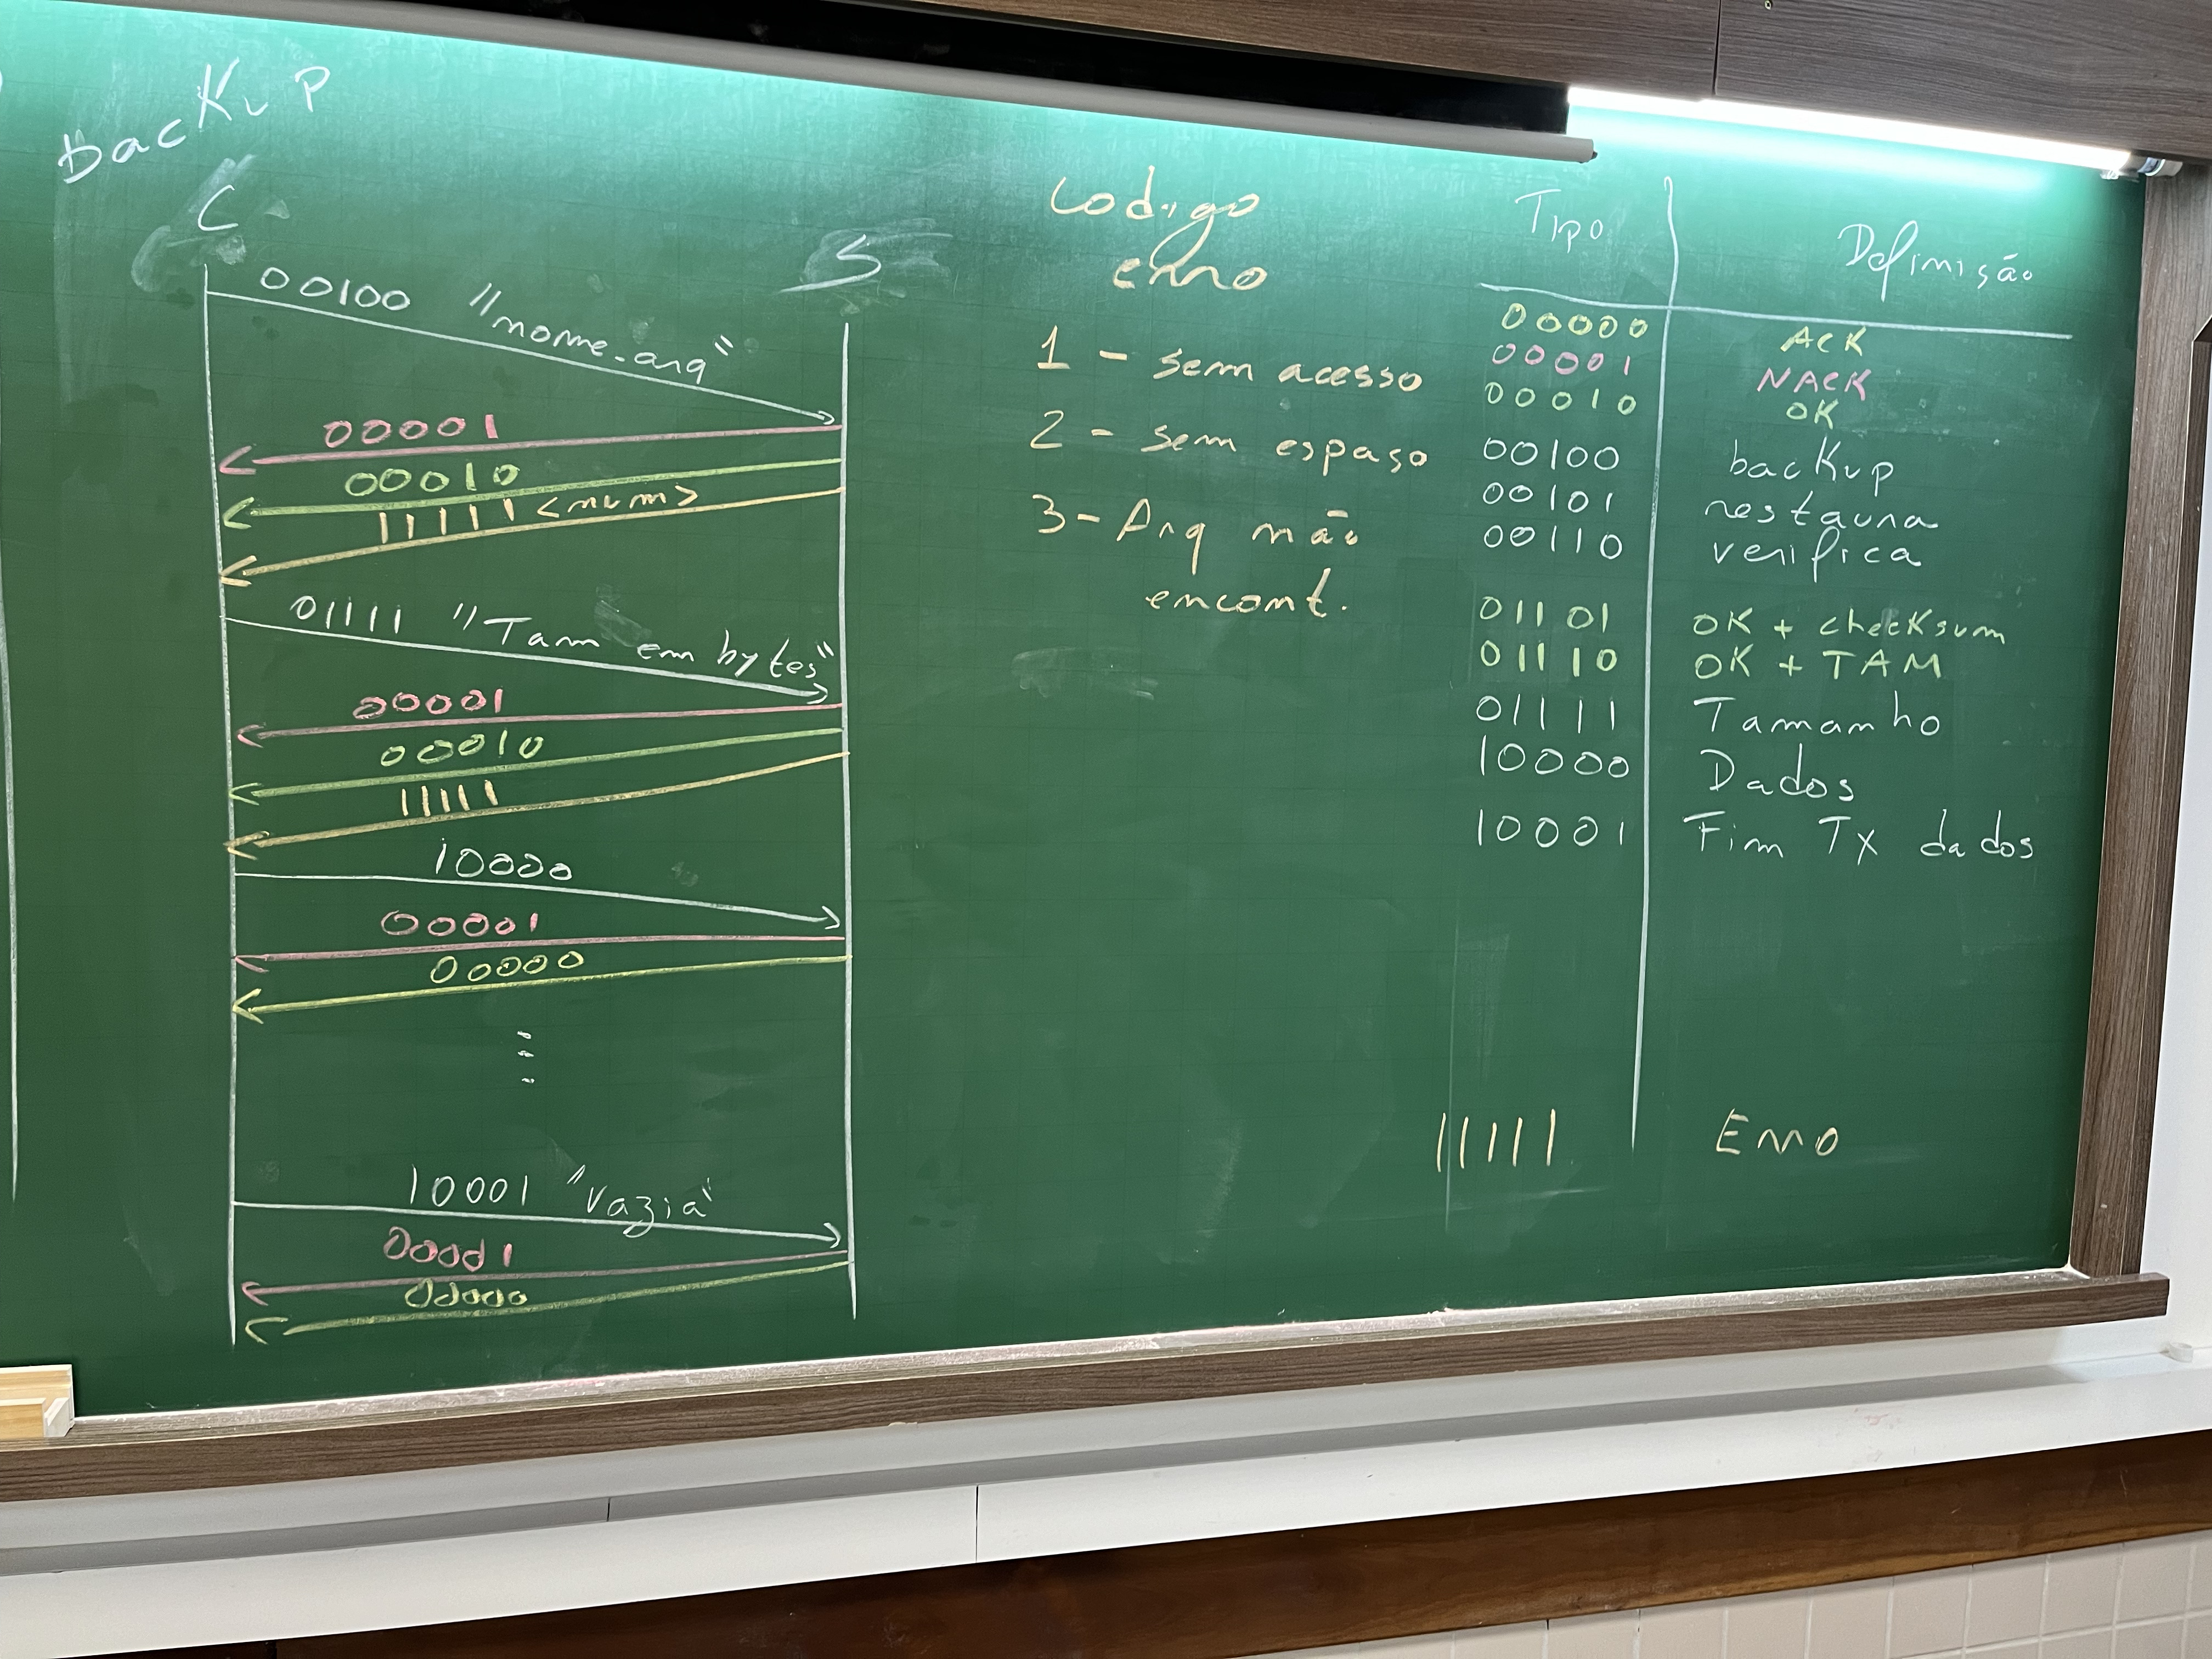 backup
C
S
00100 "nome_arq"
00001
00010
11111 <num>
01111 "Tam em bytes"
00001
00010
11111
10000
00001
00000
⋮
10001 "Vazia"
00001
00000
codigo
erro
1 - sem acesso
2 - sem espaso
3 - Arq não
encont.
Tipo Definisão
00000 ACK
00001 NACK
00010 OK
00100 backup
00101 restaura
00110 verifica
01101 OK + checksum
01110 OK + TAM
01111 Tamanho
10000 Dados
10001 Fim Tx dados
11111 Erro